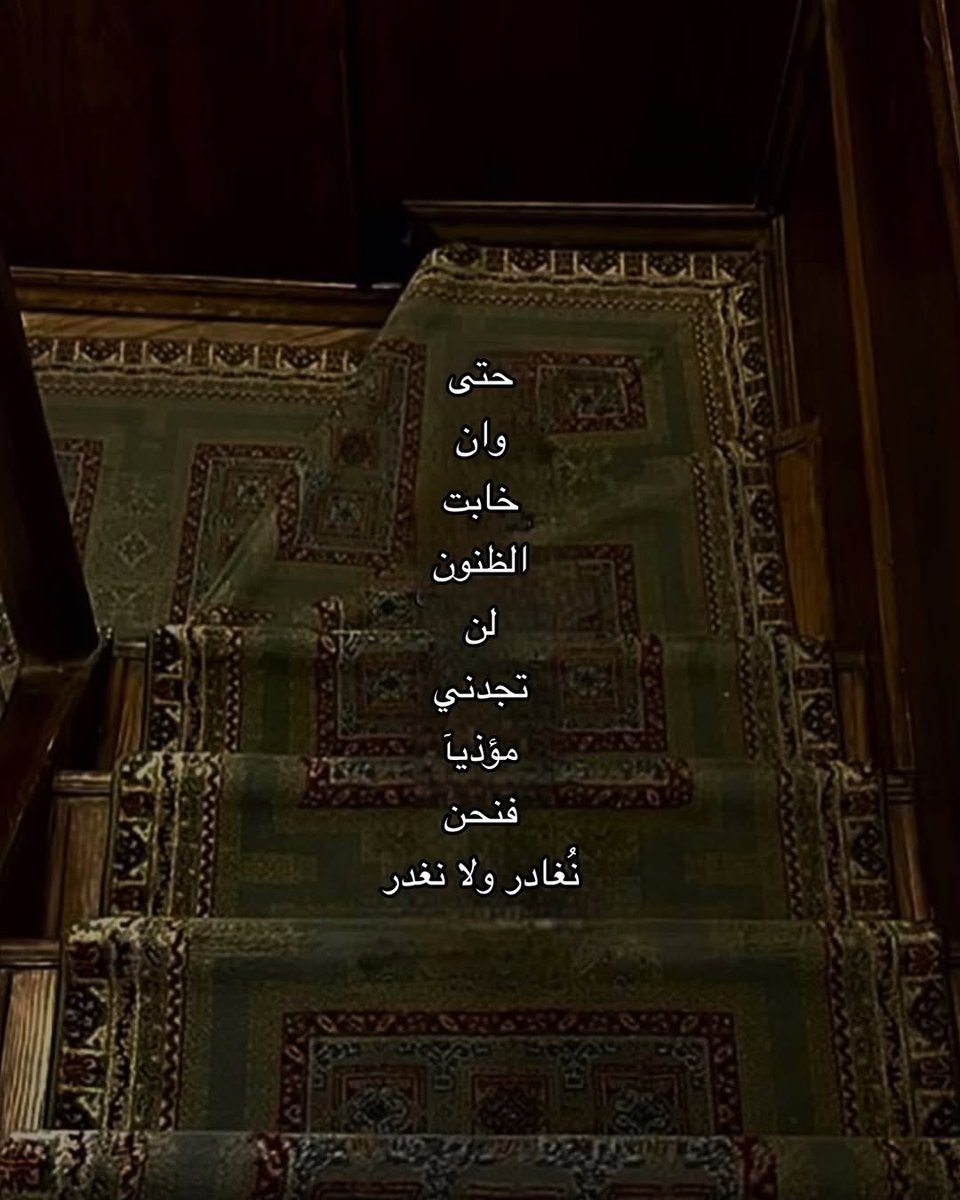 حتى
وان
خابت
الظنون
لن
تجدني
مؤذياَ
فنحن
نُغادر ولا نغدر